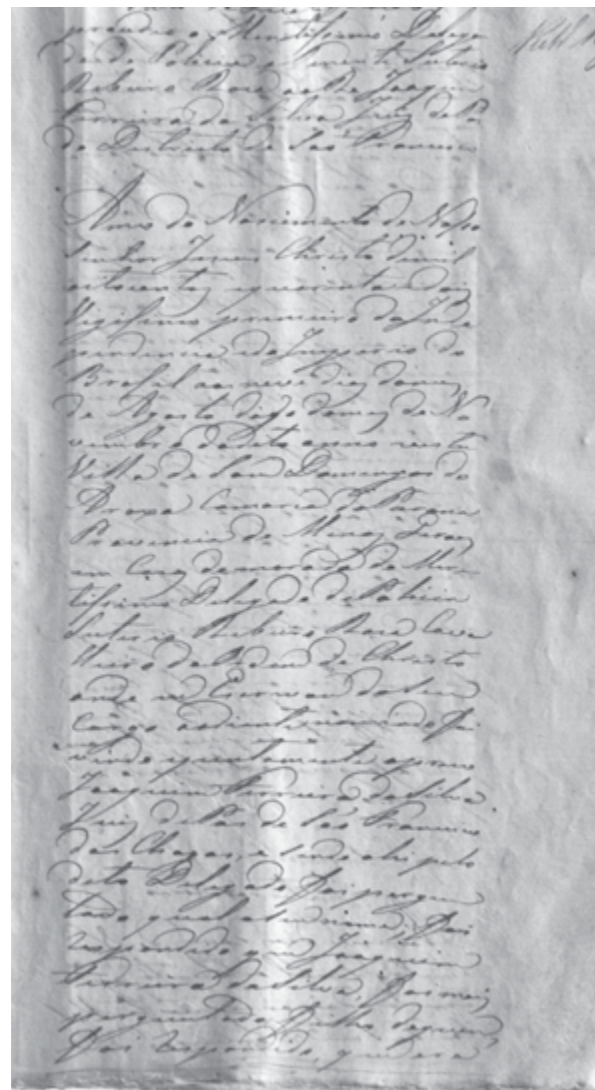 o Meritissimo Delega
do de Policia Suterio
Ribeiro Rosa a Joaquim
Ferreira da Silva Juiz de Pas
do Destricto de São Francisco
Anno do Nascimento de Nosso
Senhor Jesus Christo de mil
oito centos quarenta e dous
Vigesimo primeiro da Inde
pendencia e do Imperio do
Brasil aos nove dias do mes
de Agosto digo do mes de No
vembro do dito anno nesta
Villa de San Domingos do
Araxá Comarca do Parana
Provincia de Minas Geraes
em Casa de morada do Mere
tissimo Delegado de Policia
Suterio Ribeiro Rosa Cava
lleiro da Ordem de Christo
onde eu Escrivão do seu
cargo adiante nomiado fui
vindo
Joaquim Ferreira da Silva
Juis de Pas de São Francisco
das Chagas, e sendo ahi pelo
dito Delegado foi pergun
tado qual o seu nome, foi
respondido que Joaquim
Ferreira da Silva, foi mais
perguntado
foi respondido, que era